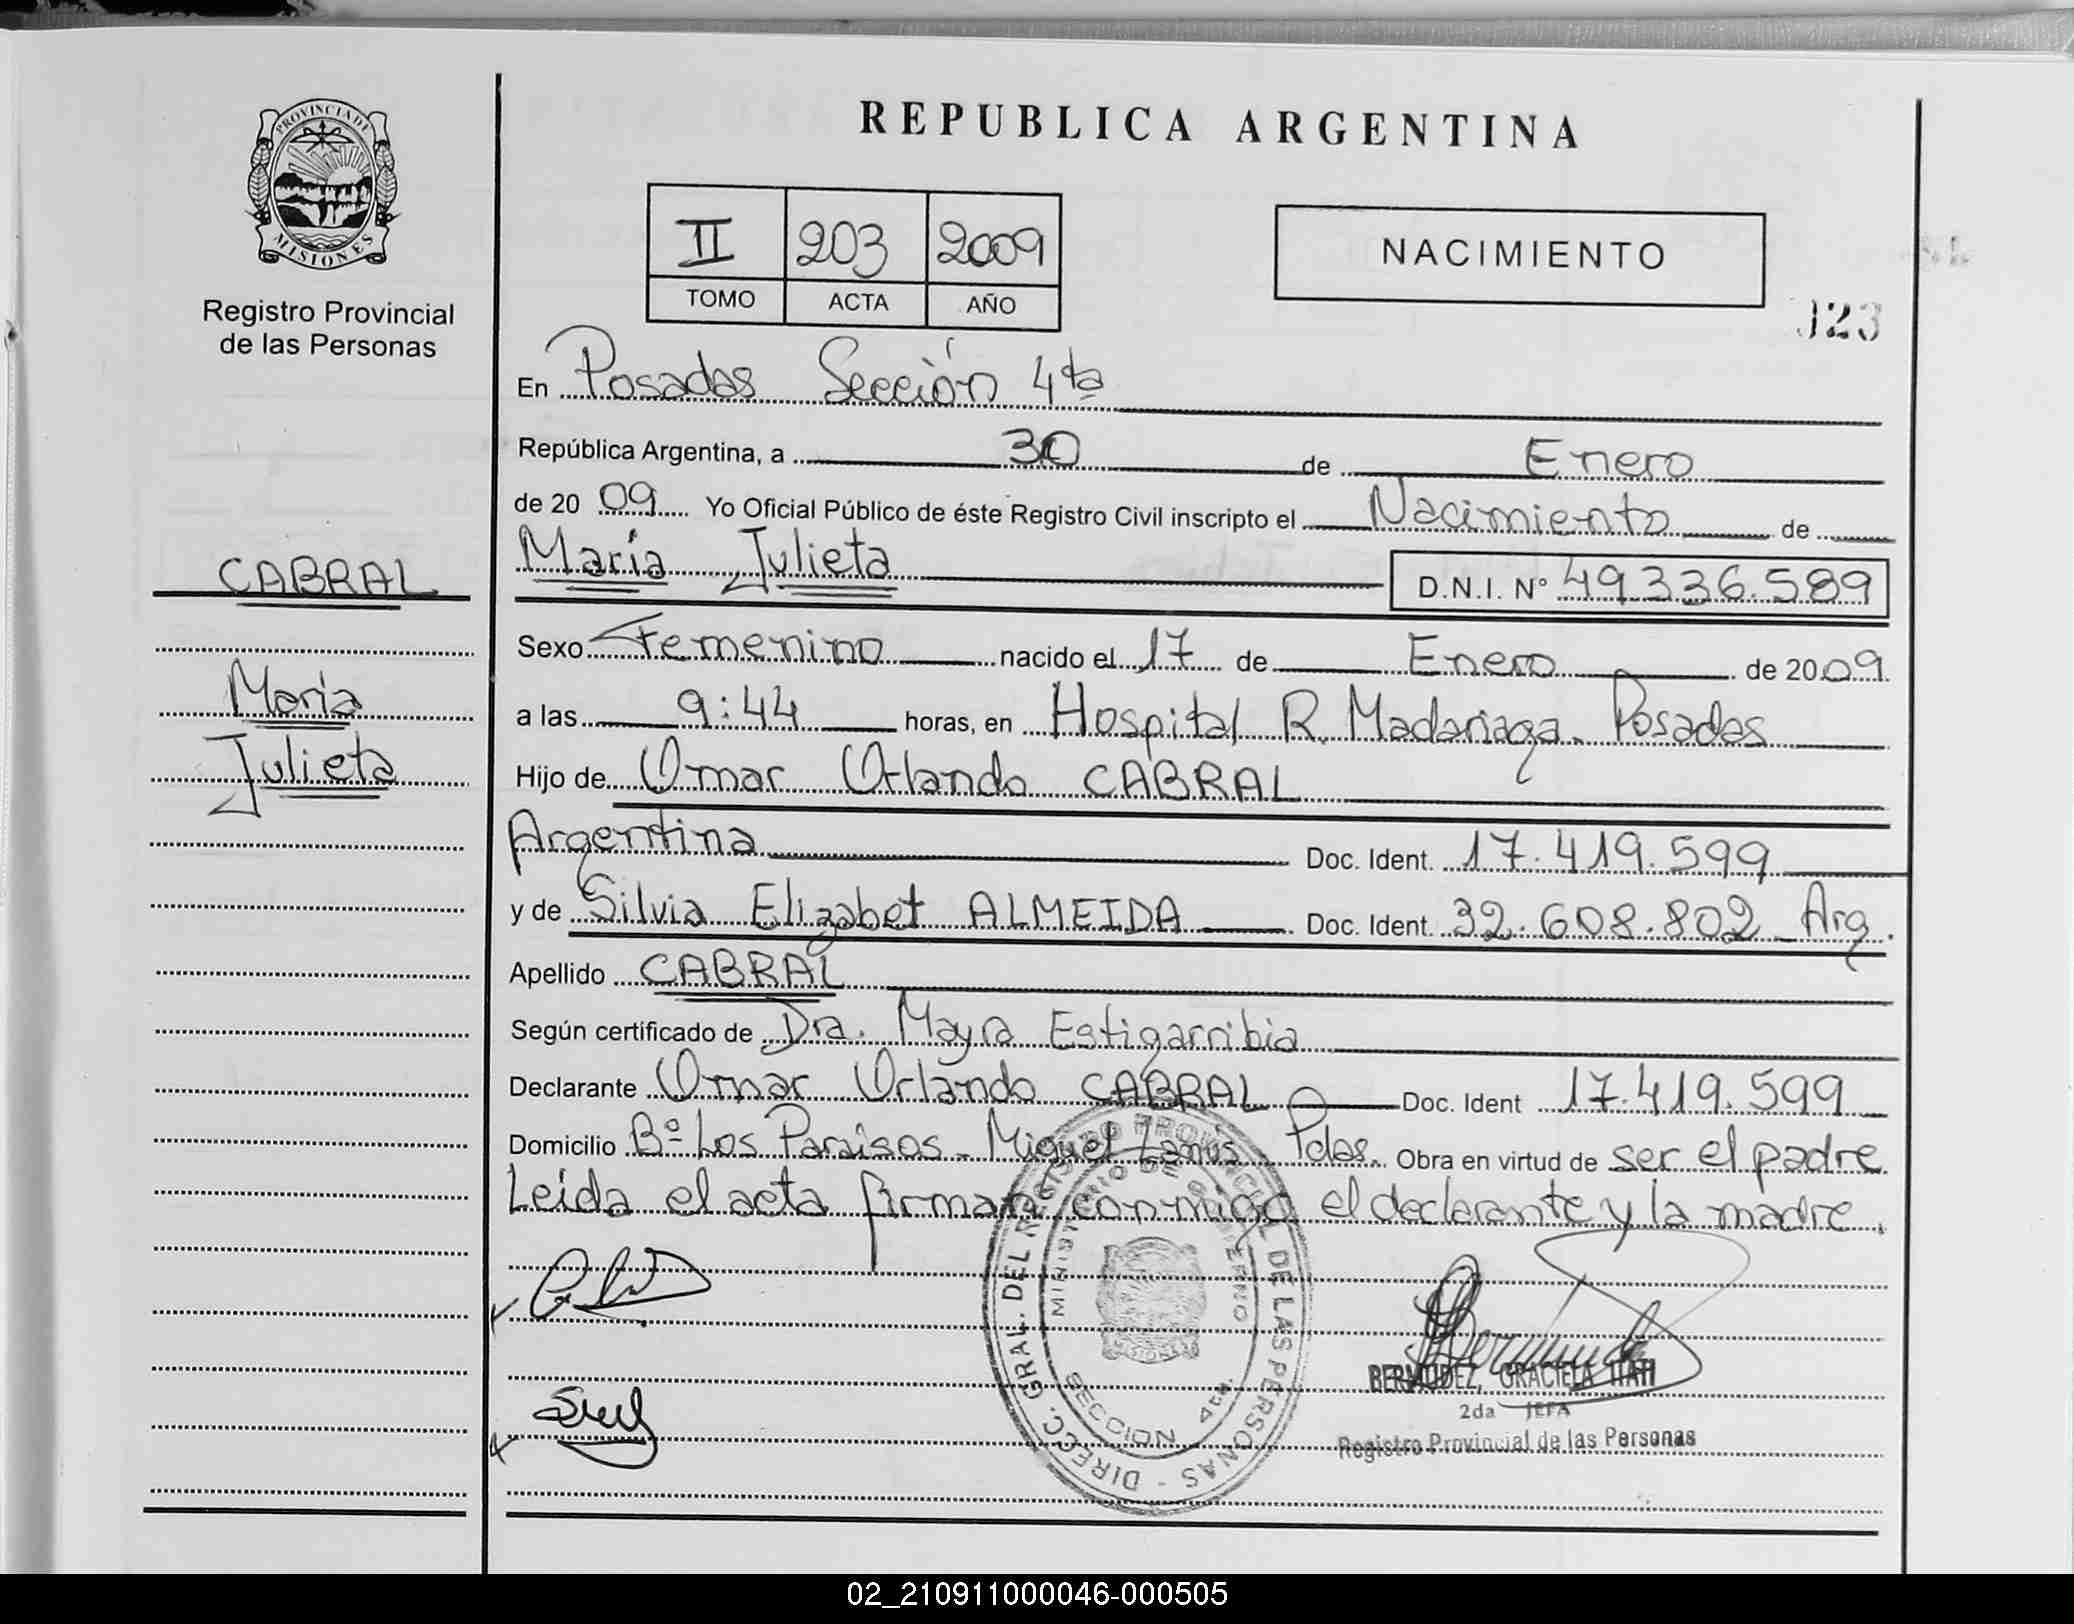 PROVINCIA DE
MISIONES
Registro Provincial
de las Personas
CABRAL
María
Julieta
REPUBLICA ARGENTINA
II 203 2009
TOMO ACTA AÑO
NACIMIENTO
123
En Posadas Sección 4ta
República Argentina, a 30 de Enero
de 2009 Yo Oficial Público de éste Registro Civil inscripto el Nacimiento de
María Julieta D.N.I. Nº 49.336.589
Sexo Femenino nacido el 17 de Enero de 2009
a las 9:44 horas, en Hospital R. Madariaga. Posadas
Hijo de Omar Orlando CABRAL
Argentina Doc. Ident. 17.419.599
y de Silvia Elizabet ALMEIDA Doc. Ident. 32.608.802 Arg.
Apellido CABRAL
Según certificado de Dra. Mayra Estigarribia
Declarante Omar Orlando CABRAL Doc. Ident 17.419.599
Domicilio Bº Los Paraisos - Miguel Lanús Pdas. Obra en virtud de ser el padre
Leida el acta firman conmigo el declarante y la madre.
DIRECC. GRAL. DEL REGISTRO PROVINCIAL DE LAS PERSONAS -
MINISTERIO DE GOBIERNO
MISIONES
SECCION 4ta.
BERMUDEZ, GRACIELA ITATI
2da JEFA
Registro Provincial de las Personas
02_210911000046-000505